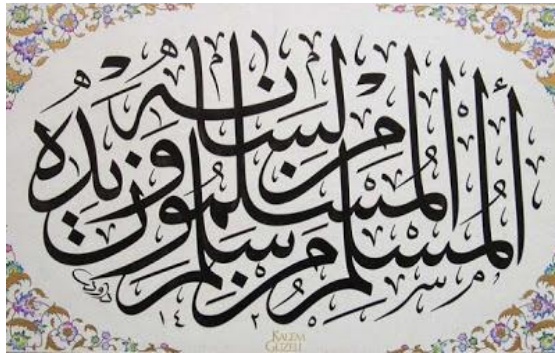 المسلم من سلم المسلمون من لسانه ويده
١٤٢٥
KALEM
GÜZELİ